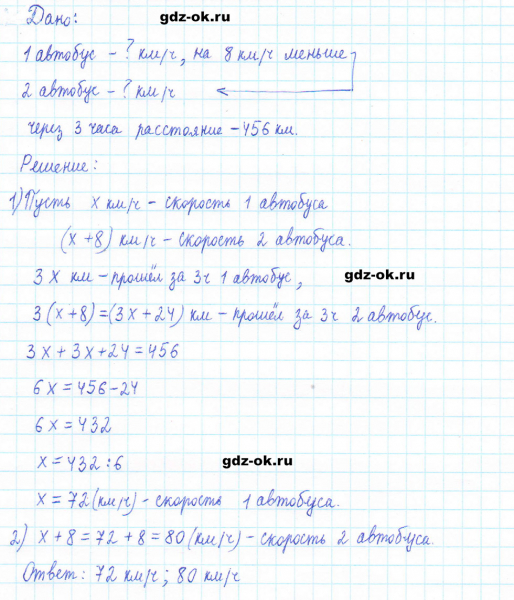 Дано: gdz-ok.ru
1 автобус - ? км/ч, на 8 км/ч меньше
2 автобус - ? км/ч
через 3 часа расстояние - 456 км.
Решение:
1) Пусть x км/ч - скорость 1 автобуса
(x + 8) км/ч - скорость 2 автобуса.
3x км - прошёл за 3ч 1 автобус, gdz-ok.ru
3(x+8)=(3x+24) км - прошёл за 3ч 2 автобус.
3x + 3x + 24 = 456
6x = 456 - 24
6x = 432
x = 432 : 6 gdz-ok.ru
x = 72 (км/ч) - скорость 1 автобуса.
2) x + 8 = 72 + 8 = 80 (км/ч) - скорость 2 автобуса.
Ответ: 72 км/ч; 80 км/ч